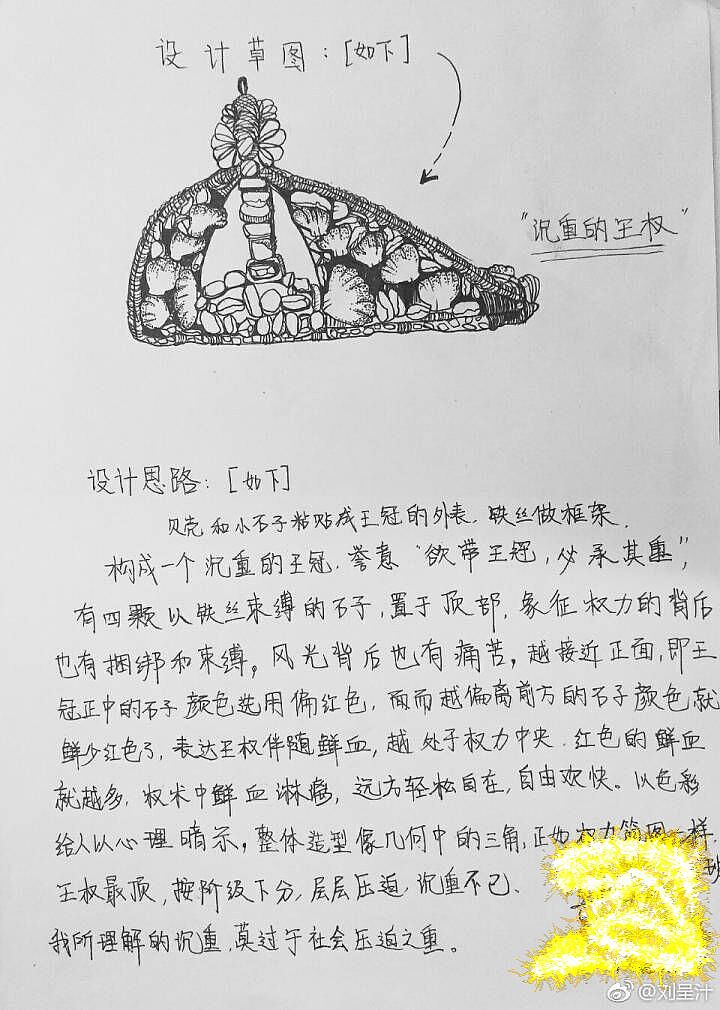 设计草图：[如下]
"沉重的王权"
设计思路：[如下]
贝壳和小石子粘贴成王冠的外表，铁丝做框架，
构成一个沉重的王冠，誉意"欲带王冠，必承其重"，
有四颗以铁丝束缚的石子，置于顶部，象征权力的背后
也有捆绑和束缚。风光背后也有痛苦。越接近正面，即王
冠正中的石子颜色选用偏红色，而越偏离前方的石子颜色就
鲜少红色了，表达王权伴随鲜血，越处于权力中央，红色的鲜血
就越多，权术中鲜血淋漓，远方轻松自在，自由欢快。以色彩
给人以心理暗示。整体造型像几何中的三角，正如权力 一样，
王权最顶，按阶级下分，层层压迫，沉重不已．
我所理解的沉重，莫过于社会压迫之重。
@刘呈汁